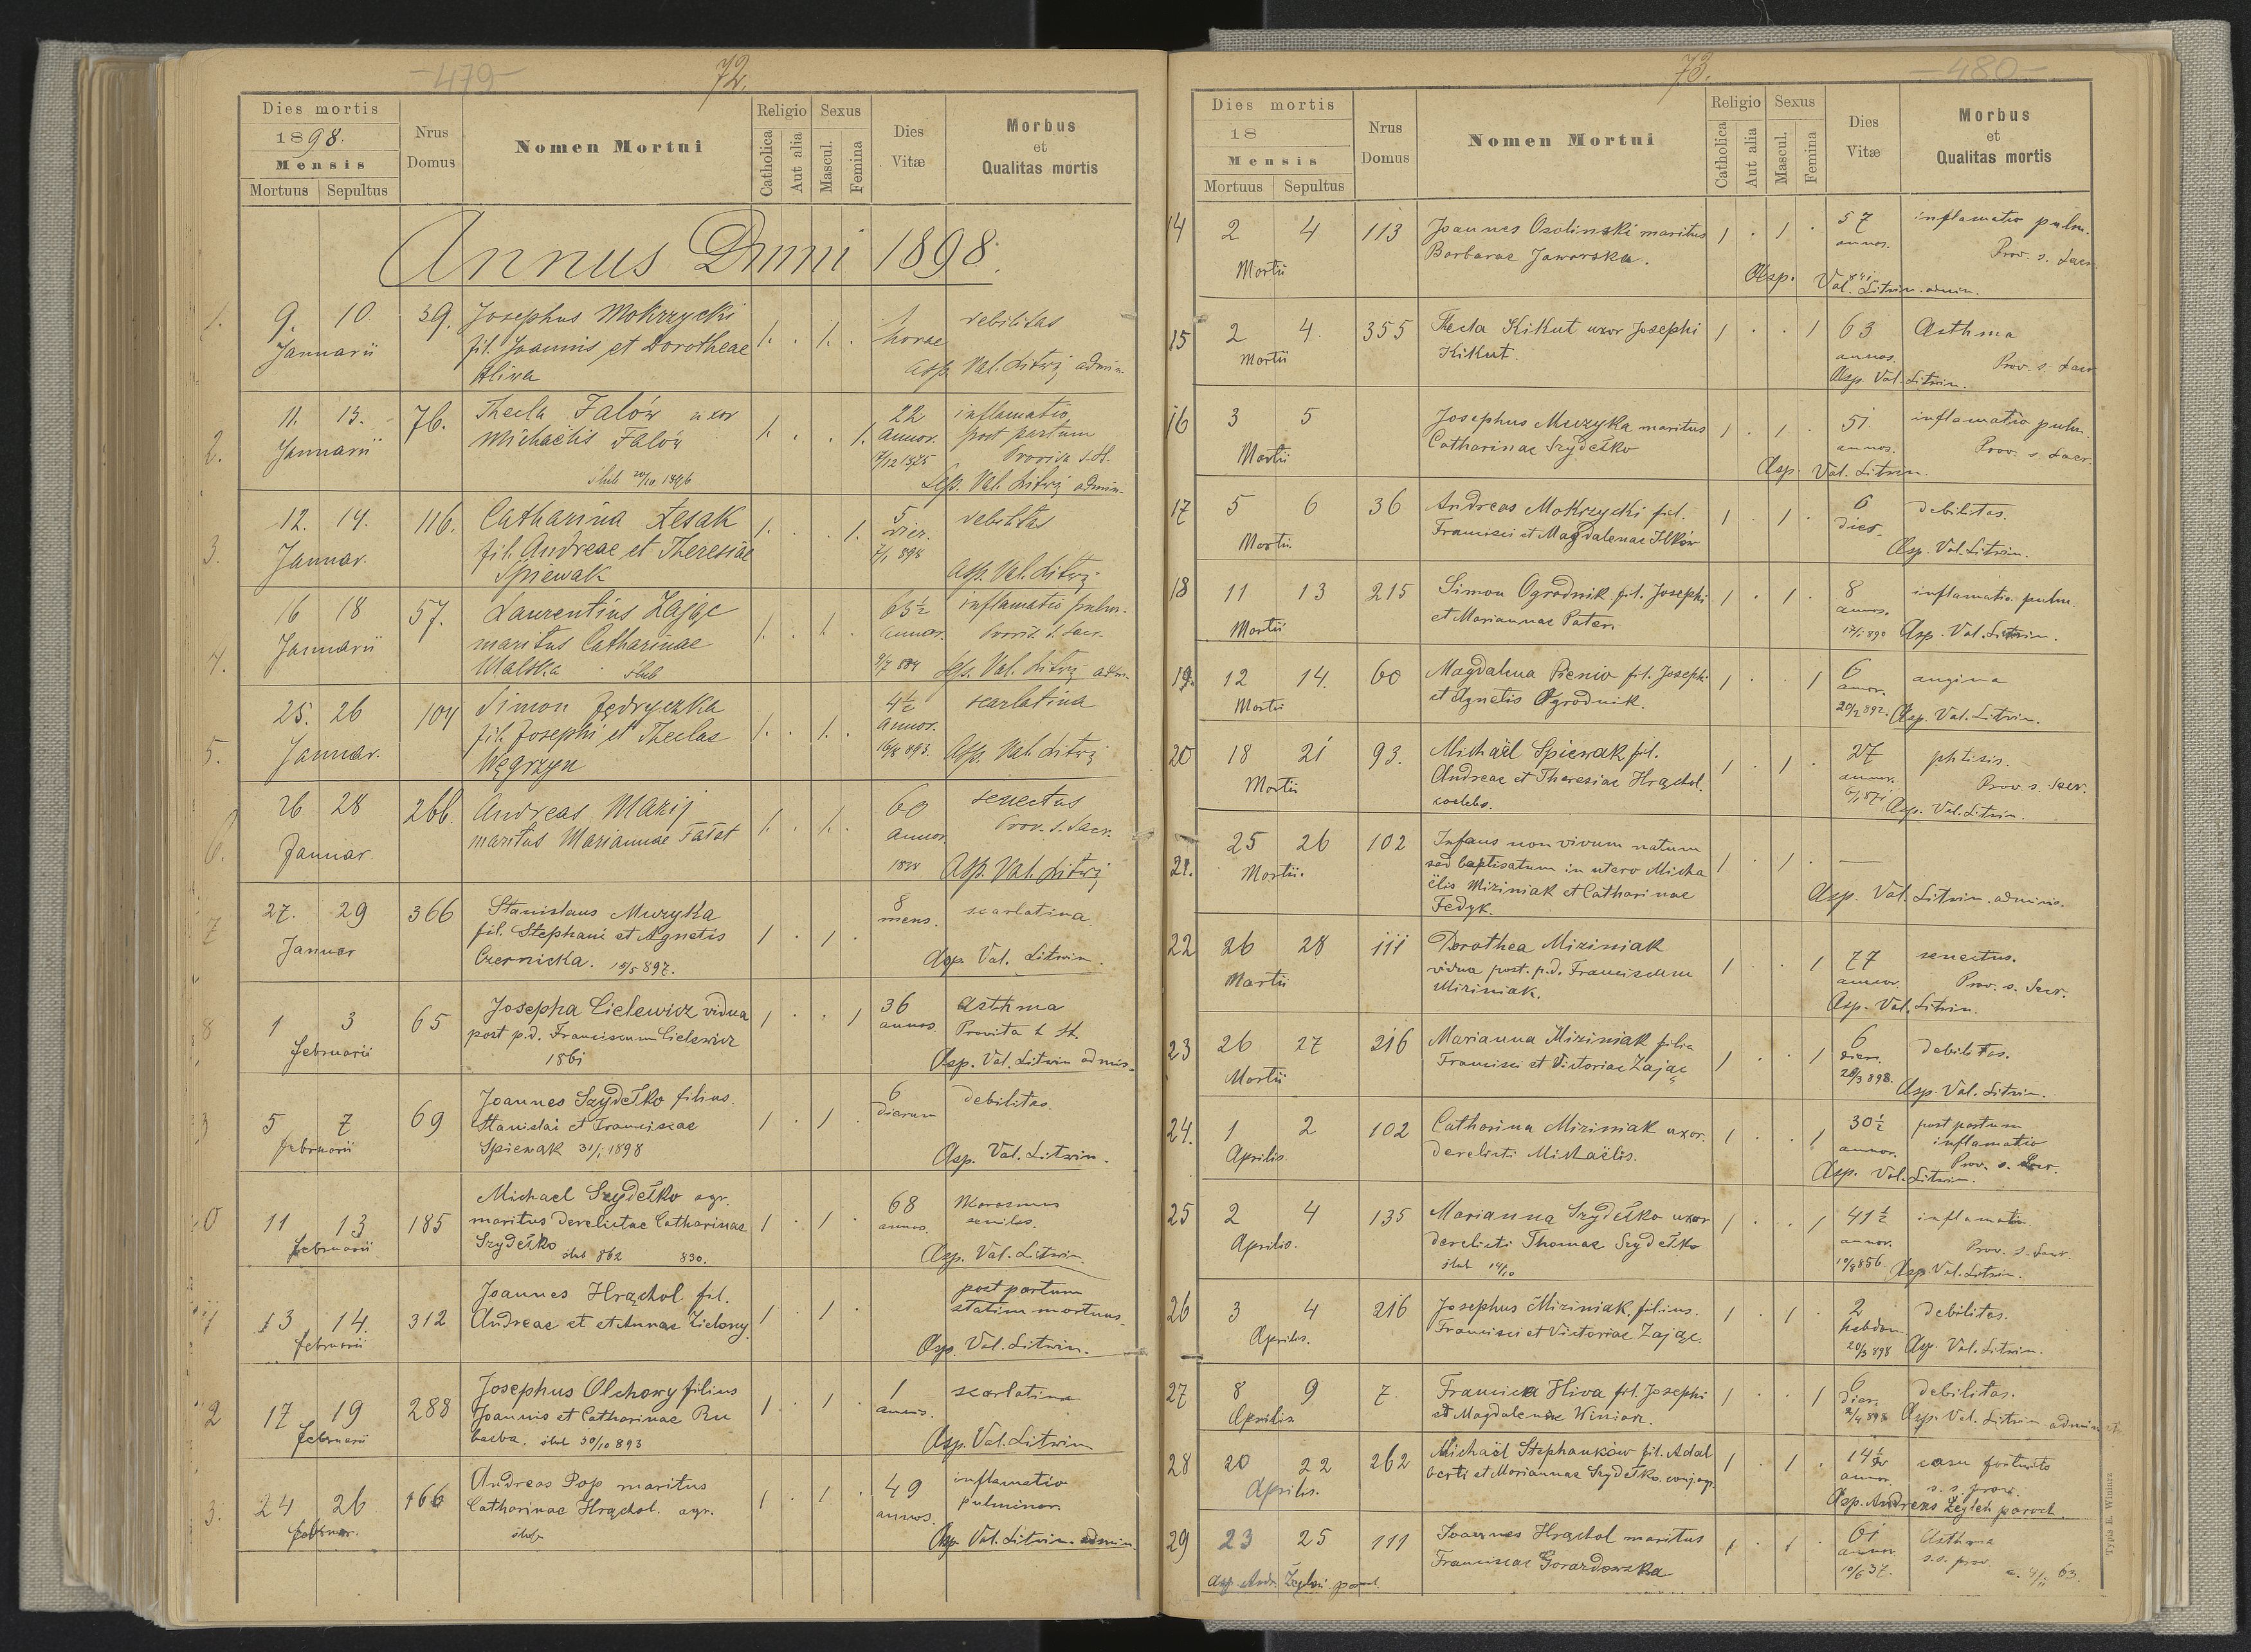 -479-
72.
Dies mortis
1898.
Mensis
Mortuus Sepultus
Nrus Domus
Nomen Mortui
Religio
Catholica
Aut alia
Sexus
Mascul.
Femina
Dies Vitæ
Morbus et Qualitas mortis
Annus Dnni 1898.
1. 9. 10. 39. Josephus Mokrzycki 1 debilitas
Januarii fil. Joannis et Dorotheae 1. . 1. . horae
Hliwa Asp. Val. Litwin admin.
2. 11. 13. 76. Thecla Falów uxor 22 inflamatio
Januarii Michaëlis Falów 1. . . 1. annor. post partum
Provisa
ślub 20/10 1896 Asp. Val. Litwin admin.
3. 12. 14. 116. Catharina Lesak 5 debilitas
Januar. fil. Andreae et Theresiae 1. . . 1. dier.
Spiewak 7/1 898 Asp. Val. Litwin
4. 16 18 57. Laurentius Zając 63½ inflamatio pulm.
Januarii maritus Catharinae 1. . 1. . annor. Provis. s. Sacr.
Walska ślub Asp. Val. Litwin adm.
5. 25. 26 104 Simon Jędryczka 4½ scarlatina
Januar. fil. Josephi et Theclae 1. . 1. . annor.
Węgrzyn 893. Asp. Val. Litwin
6. 26 28 266. Andreas Mazij 60 senectus
Januar. maritus Mariannae Fałat 1. . 1. . annor. Prov. s. Sacr.
1838 Asp. Val. Litwin
7 27. 29 366 Stanislaus Muzyka 8 scarlatina
Januar fil. Stephani et Agnetis 1 . 1 . mens.
Czernicka. 10/5 897. Asp. Val. Litwin.
8 1 3 65 Josepha Cielewicz vidua 36 Asthma
Februarii post p.d. Franciscum Cielewicz 1 . . 1 annos.
1861 Asp. Val. Litwin admin.
5 7 69 Joannes Szydełko filius. 6 debilitas.
Februarii Stanislai et Franciscae 1 . 1 . dierum
Spiewak 31/1 1898 Asp. Val. Litwin.
0 11 13 185 Michael Szydełko agr. 68 Marasmus
Februarii maritus derelictae Catharinae 1 . 1 . annos. senilis.
Szydełko ślub 862 830. Asp. Val. Litwin
13 14. 312 Joannes Hrąchol fil. post partum
Februarii Andreae et et Annae Zielony 1 . 1 . statim mortuus.
Asp. Val. Litwin.
2 17 19 288 Josephus Olchowy filius 1 scarlatina
Februarii Joannis et Catharinae Ru 1 . 1 . annus.
barba. ślub 30/10 893 Asp. Val. Litwin
3. 24 26 166 Andreas Pop maritus 49 inflamatio
Februar. Catharinae Hrąchol. agr. 1 . 1 . annos. pulminor.
ślub Asp. Val. Litwin. admin.
-480-
73.
Dies mortis
18
Mensis
Mortuus Sepultus
Nrus Domus
Nomen Mortui
Religio
Catholica
Aut alia
Sexus
Mascul.
Femina
Dies Vitæ
Morbus et Qualitas mortis
14 2 4 113 Joannes Osolinski maritus 1 . 1 . 57 inflamatio pulm.
Martii Barbarae Jaworska. annos. Prov. s. Sacr.
Asp. Val. Litwin. admin.
15 2 4. 355 Thecla Kikut uxor Josephi 1 . . 1 63 Asthma
Martii Kikut. annos. Prov. s. Sacr
Asp. Val. Litwin.
16 3 5 Josephus Muzyka maritus 1 . 1 . 51 inflamatio pulm.
Martii Catharinae Szydełko annos. Prov. s. Sacr.
Asp. Val. Litwin.
17 5 6 36 Andreas Mokrzycki fil. 1 . 1 . 6 debilitas.
Martii Francisci et Magdalenae Ilków dies.
Asp. Val. Litwin.
18 11 13 215 Simon Ogrodnik fil. Josephi 1 . 1 . 8 inflamatio pulm.
Martii et Mariannae Pater. annos.
17/1 890 Asp. Val. Litwin.
19. 12 14. 60 Magdalena Pienio fil. Josephi 1 . . 1 6 angina
Martii et Agnetis Ogrodnik. annor.
20/2 892. Asp. Val. Litwin.
20 18 21 93. Michaël Spiewak fil. 27 phtisis.
Martii Andreae et Theresiae Hrąchol. 1 . 1 . annor. Prov. s. Sacr.
coelebs. 871 Asp. Val. Litwin.
21. 25 26 102 Infans non vivum natum
Martii. sed baptisatum in utero Micha 1 . 1 . —
ëlis Miziniak et Catharinae
Fedyk. Asp. Val. Litwin. adminis.
22 26 28 111 Dorothea Miziniak 77 senectus.
Martii vidua post. p.d. Franciscum 1 . . 1 annor. Prov. s. Sacr.
Miziniak. Asp. Val. Litwin.
23 26 27 216 Marianna Miziniak filia 6 debilitas.
Martii Francisci et Victoriae Zając 1 . . 1 dier.
20/3 898. Asp. Val. Litwin.
24. 1 2 102 Catharina Miziniak uxor. 1 . . 1 30½ post partum
Aprilis derelicti Michaëlis. annor. inflamatio
Prov. s. Sacr.
Asp. Val. Litwin.
25 2 4 135 Marianna Szydełko uxor 1 . . 1 41½ inflamatio
Aprilis. derelicti Thomae Szydełko annor. Prov. s. Sacr.
ślub 14/10 10/8 856 Asp. Val. Litwin.
26 3 4 216 Josephus Miziniak, filius. 1 . 1 . 2 debilitas.
Aprilis. Francisci et Victoriae Zając. hebdom
20/3 898 Asp. Val. Litwin.
27 8 9 7. Francisca Hliva fil. Josephi 1 . . 1 6 debilitas.
Aprilis et Magdalenae Winiarz. dier.
2/4 898 Asp. Val. Litwin administ
28 20 22 262 Michaël Stephanków fil. Adal 1 . 1 . 14½ casu fortuito
Aprilis. berti et Mariannae Szydełko conj. agr. annor. s. s. prov.
Asp. Andreas Żegleń paroch.
29 23 25 111 Joannes Hrąchol maritus 1 . 1 . 61 Asthma
Franciscae Gorazdowska annor. s. s. prov.
Asp. Andr. Żegleń paroch. 10/6 37. 63.
Typis E. Winiarz